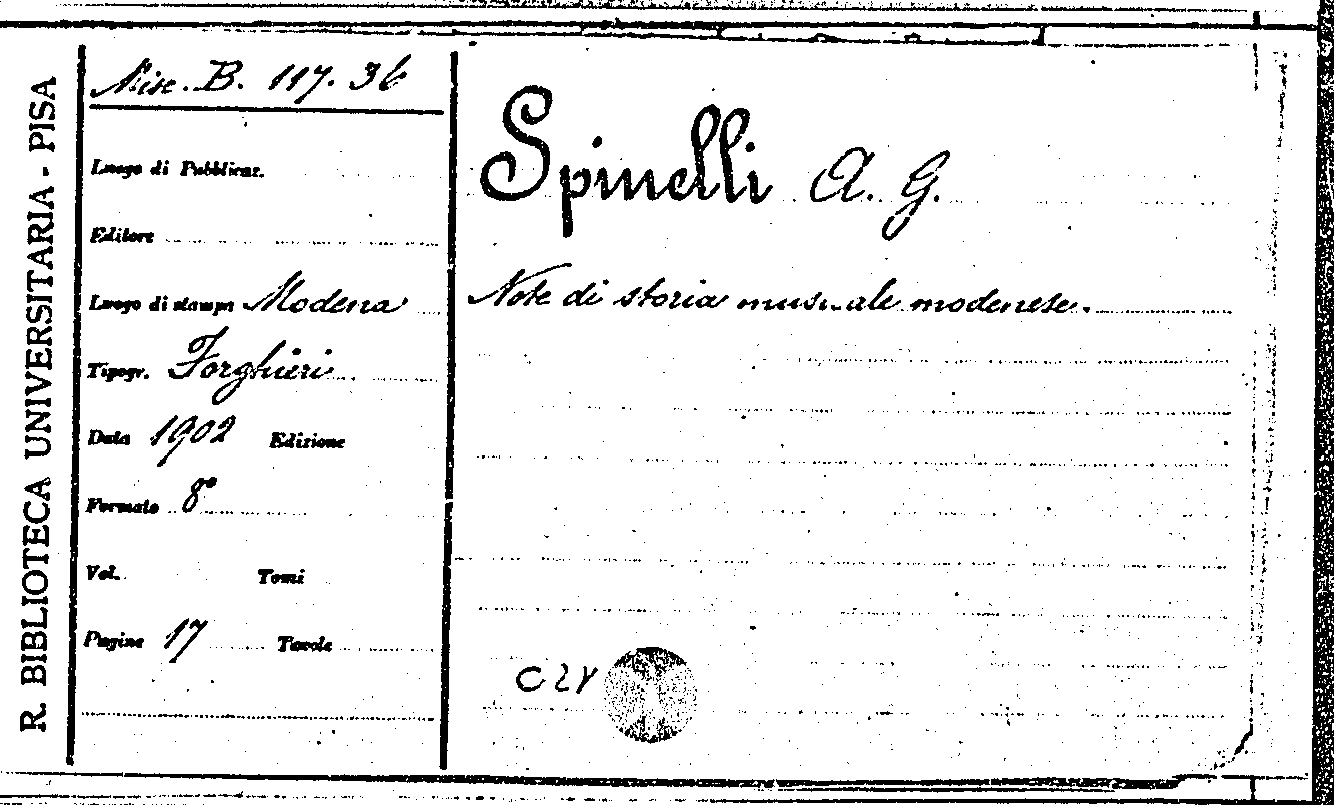 R. BIBLIOTECA UNIVERSITARIA - PISA
Misc. B. 117. 36
Luogo di Pubblicaz.
Editore
Luogo di stampa Modena
Tipogr. Forghieri
Data 1902 Edizione
Formato 8°
Vol. Tomi
Pagine 17 Tavole
Spinelli A. G.
Note di storia musicale modenese.